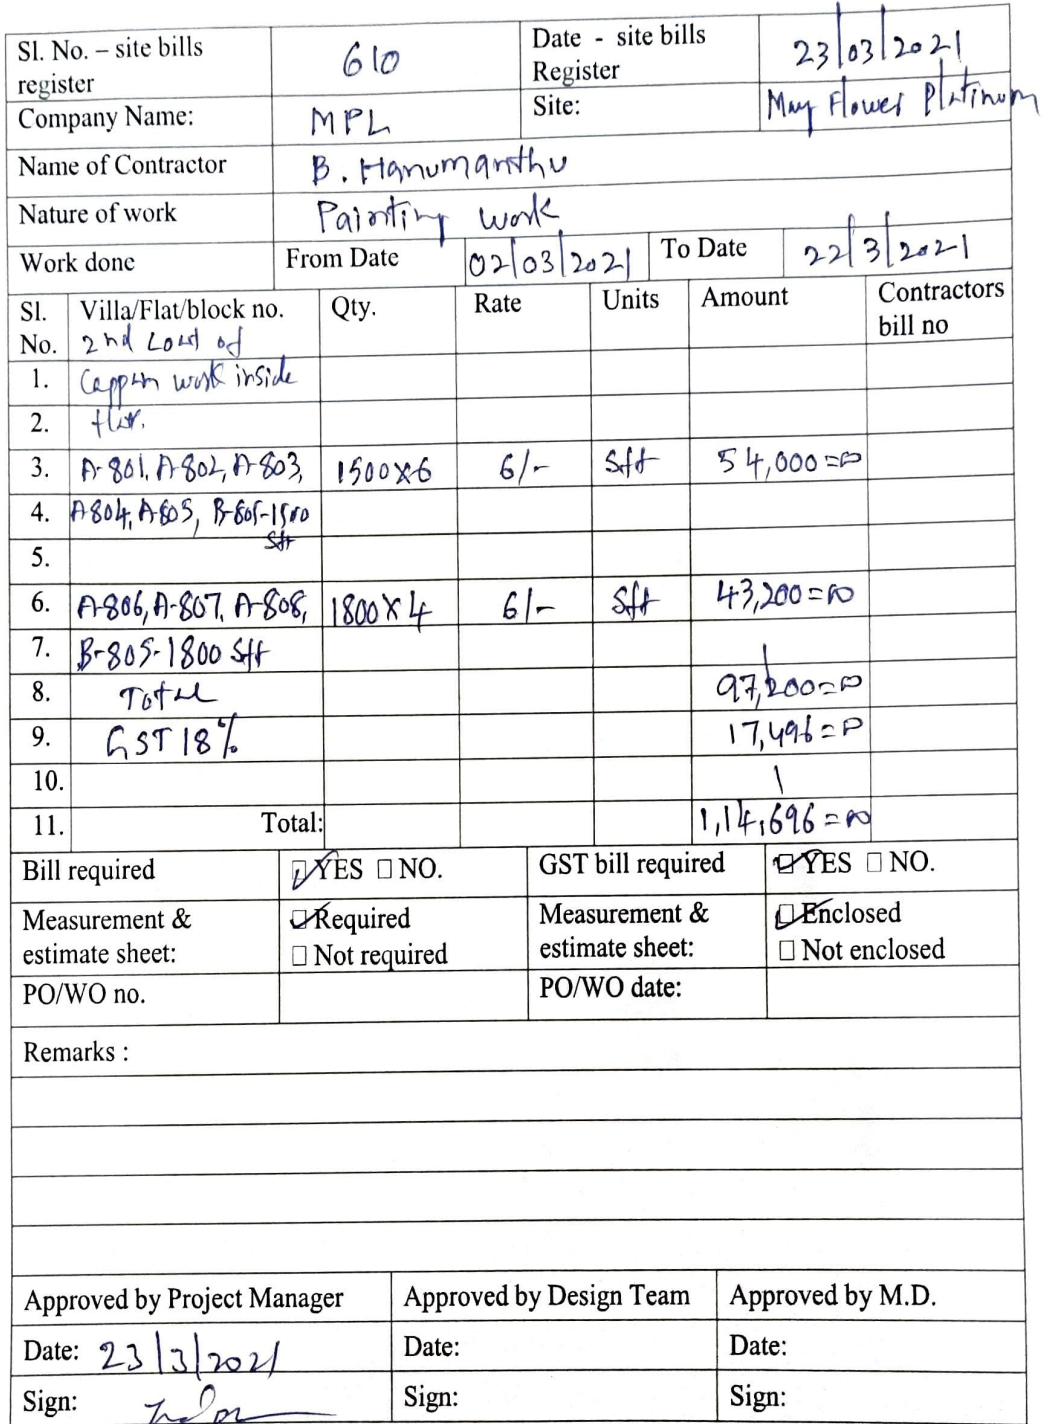 Sl. No. – site bills register 610 Date - site bills Register 23/03/2021
Company Name: MPL Site: May Flower Platinum
Name of Contractor B. Hanumanthu
Nature of work Painting work
Work done From Date 02/03/2021 To Date 22/3/2021
Sl. No. Villa/Flat/block no. Qty. Rate Units Amount Contractors bill no
2nd of
1. work inside
2.
3. A-801, A-802, A-803, 1500x6 6/- Sft 54,000=00
4. A804, A805, 1500
Sft
5.
6. A-806, A-807, A-808, 1800x4 6/- Sft 43,200=00
7. B-805-1800 Sft
8. Total 97,200=00
9. GST 18% 17,496=00
10.
11. Total: 1,14,696=00
Bill required YES NO. GST bill required YES NO.
Measurement & estimate sheet: Required Measurement & estimate sheet: Enclosed
Not required Not enclosed
PO/WO no. PO/WO date:
Remarks :
Approved by Project Manager Approved by Design Team Approved by M.D.
Date: 23/3/2021 Date: Date:
Sign: Sign: Sign: